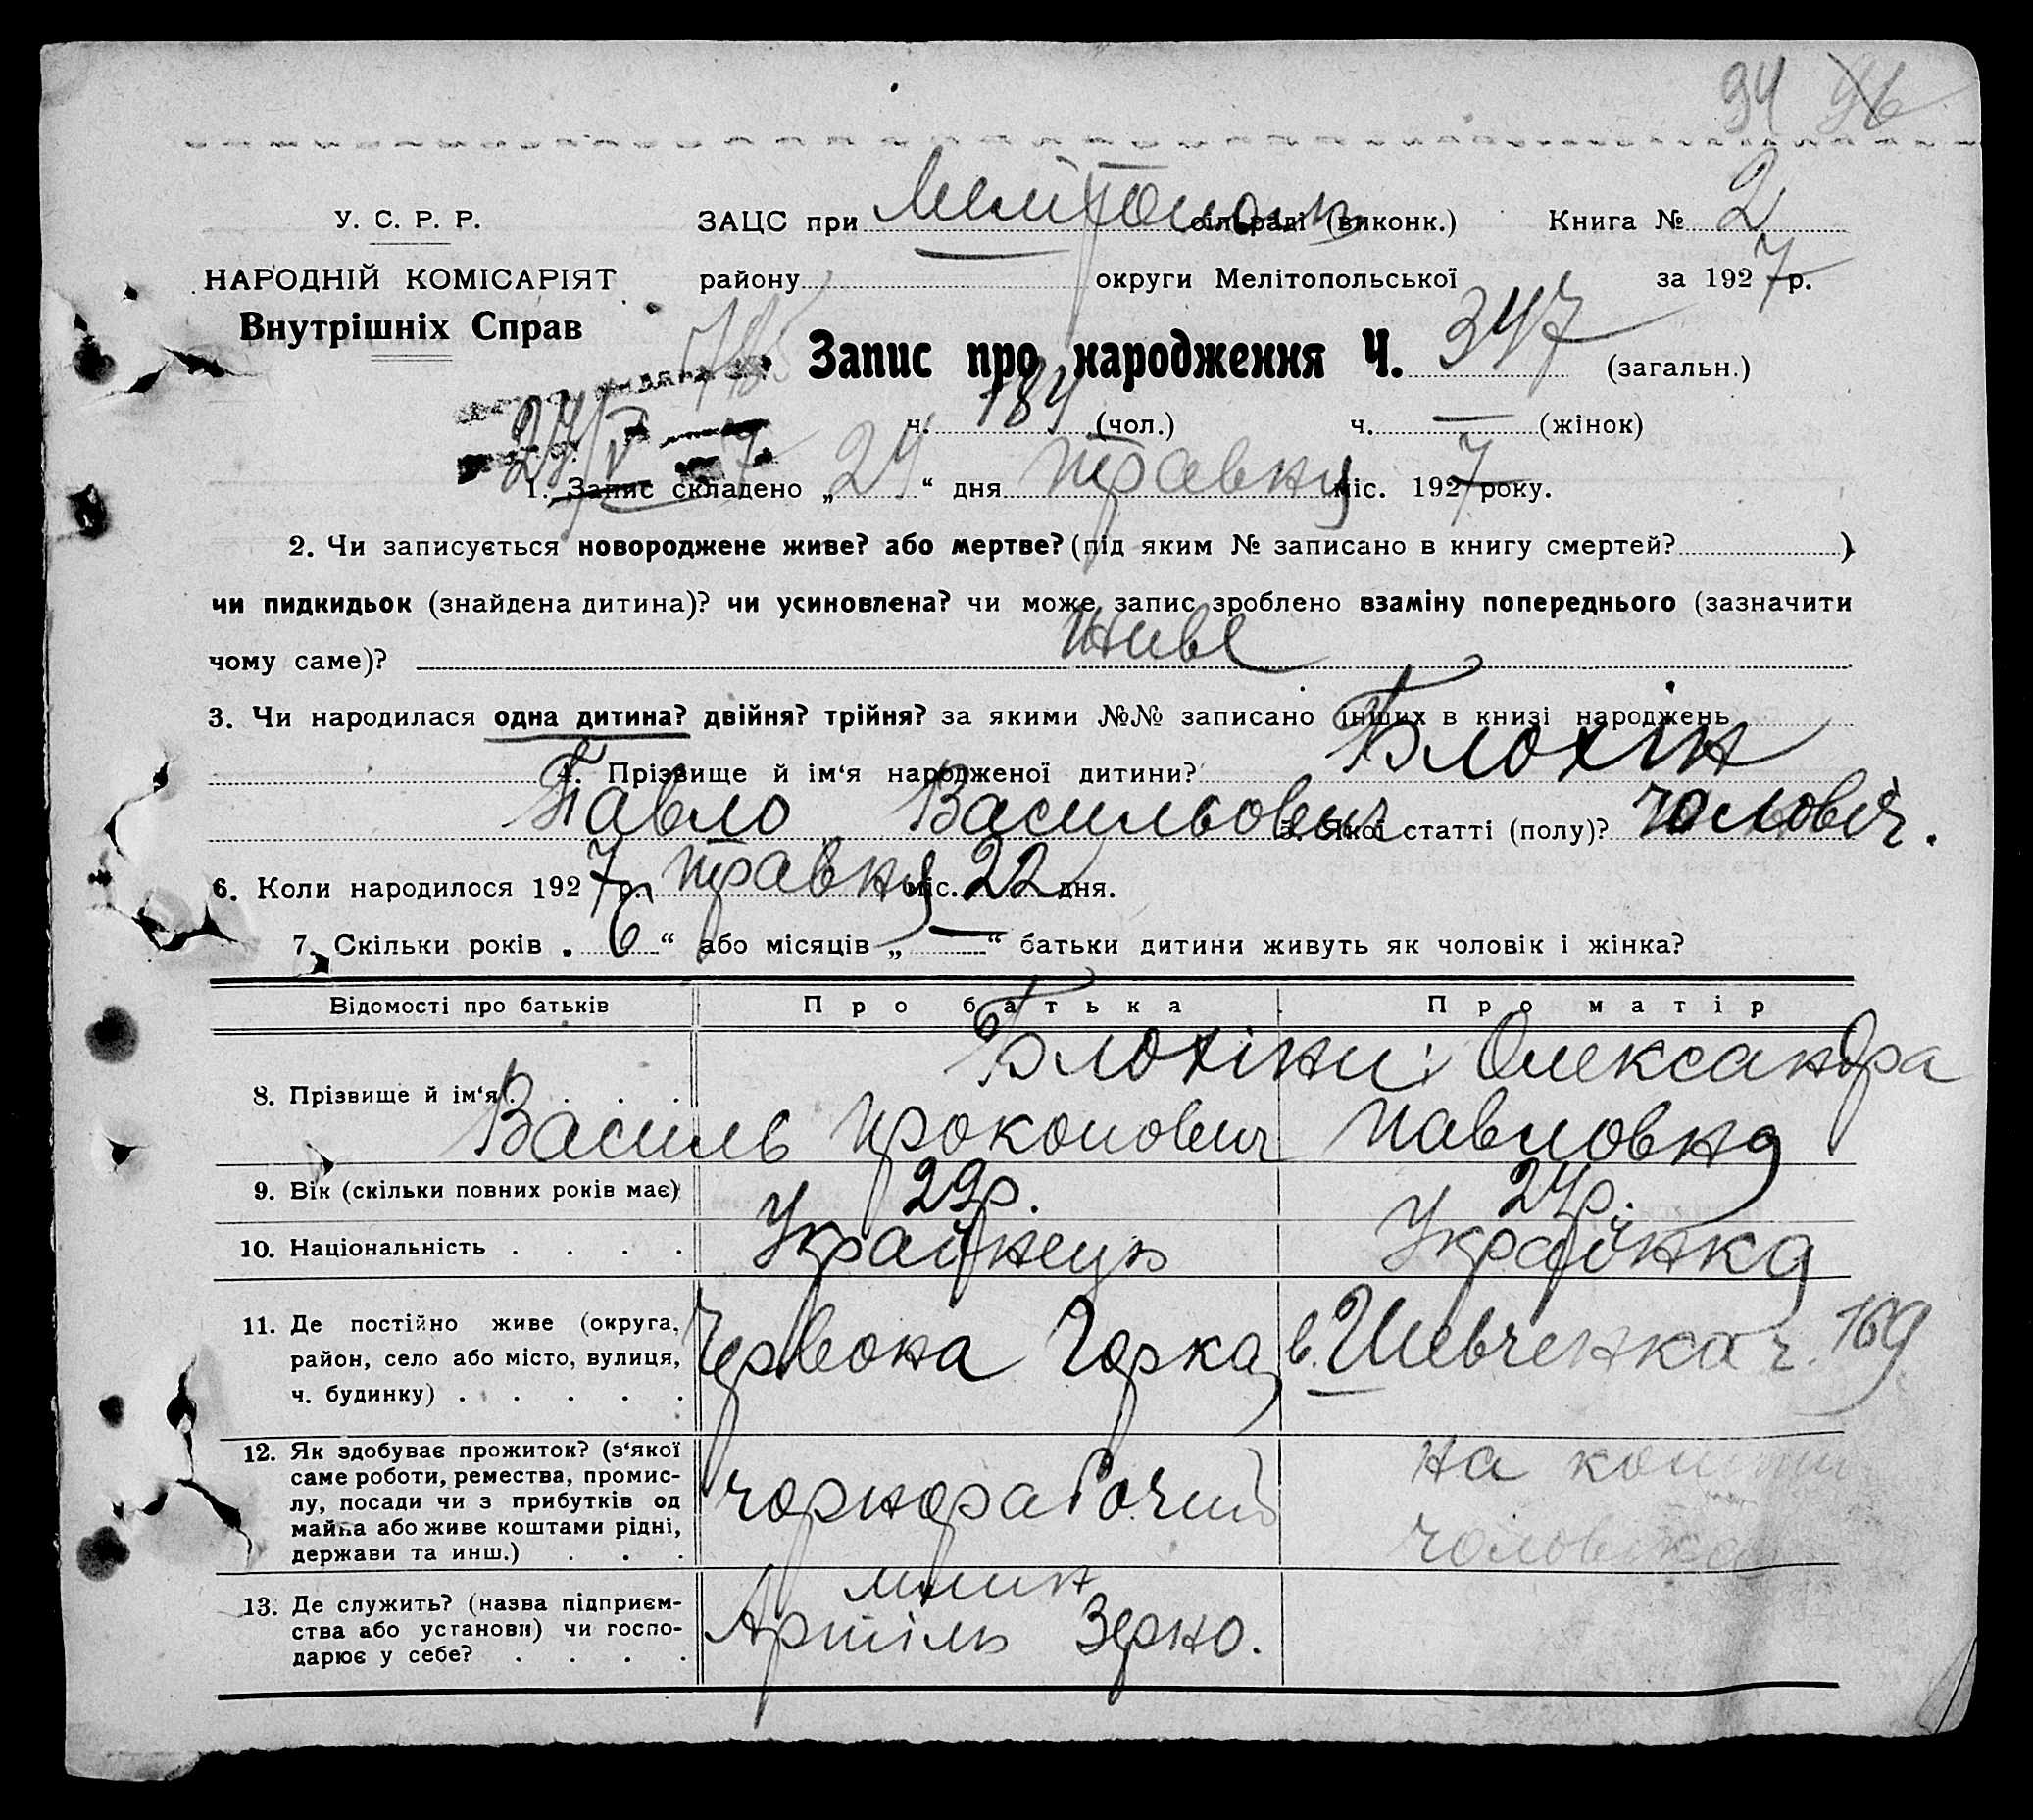 94 96
У. С. Р. Р. ЗАЦС при Мелітопольск сільраді (виконк.) Книга № 2
НАРОДНІЙ КОМІСАРІЯТ району округи Мелітопольської за 1927 р.
Внутрішніх Справ
Запис про народження Ч. 347 (загальн.)
ч. 184 (чол.) ч. — (жінок)
27/V 7
1. Запис складено „ 24 “ дня травня міс. 1927 року.
2. Чи записується новороджене живе? або мертве? (під яким № записано в книгу смертей? )
чи пидкидьок (знайдена дитина)? чи усиновлена? чи може запис зроблено взаміну попереднього (зазначити
чому саме)? живе
3. Чи народилася одна дитина? двійня? трійня? за якими №№ записано інших в книзі народжень
4. Прізвище й ім‘я народженої дитини? Блохін
Павло Васильович 5. Якої статті (полу)? чоловіч.
6. Коли народилося 1927 р. травня міс. 22 дня.
7. Скільки років „ 6 “ або місяців „ — “ батьки дитини живуть як чоловік і жінка?
Відомості про батьків Про батька Про матір
8. Прізвище й ім‘я . . . . Блохіни: Олександра
Василь Прокопович Павловна
9. Вік (скільки повних років має) 29р. 24р.
10. Національність . . . . Українець Українка
11. Де постійно живе (округа,
район, село або місто, вулиця,
ч. будинку) . . . . . Червона Горка, в. Шевченка ч. 169
12. Як здобуває прожиток? (з‘якої
саме роботи, ремества, промис-
лу, посади чи з прибутків од
майна або живе коштами рідні,
держави та инш.) . . . чорнорабочий на кошти
чоловіка
13. Де служить? (назва підприєм-
ства або установи) чи госпо-
дарює у себе? . . . . млин
Артіль Зерно.